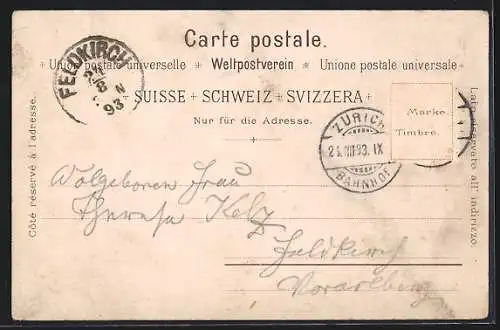 Carte postale.
Union postale universelle * Weltpostverein * Unione postale universale
SUISSE + SCHWEIZ + SVIZZERA
Nur für die Adresse.
Côté réservé à l'adresse.
Marke.
Timbre.
Lato riservato all' indirizzo.
FELDKIRCH
24
8
N
93
ZÜRICH
24.VIII.93. IX
BAHNHOF
Wolgeboren Frau
Theresa Kelz
Feldkirch
Vorarlberg